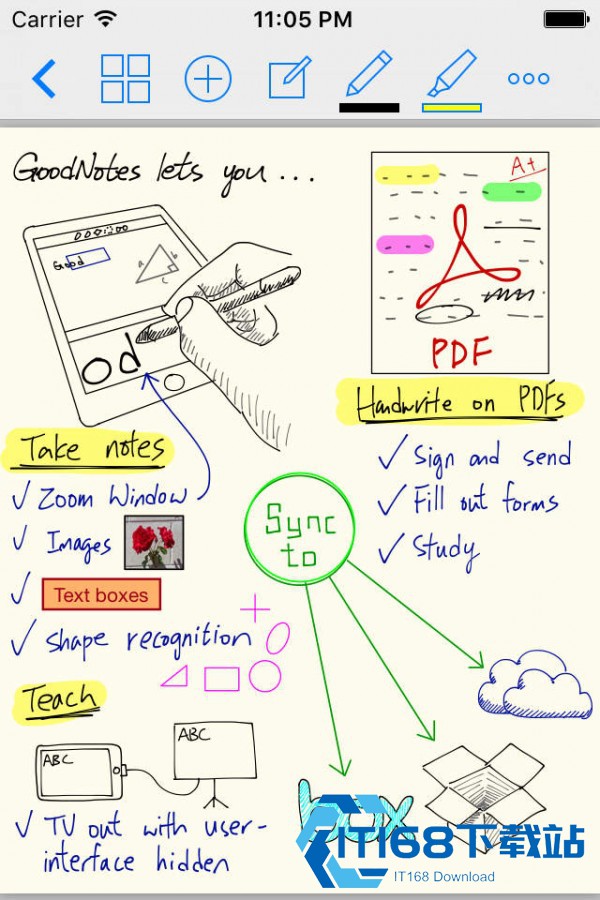 Carrier 11:05 PM
GoodNotes lets you ...
Good
od
A+
PDF
Handwrite on PDFs
Sign and send
Fill out forms
Study
Take notes
Zoom Window
Images
Text boxes
shape recognition
Sync
to
Teach
ABC
ABC
TV out with user-
interface hidden
box
IT168下载站
IT168 Download